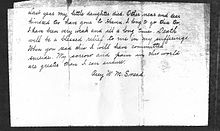 Last year my little daughter died. Other near and dear
kindred too have gone to Heaven. I long to go there too.
I have been very weak and ill a long time. Death
will be a blessed relief to me in my sufferings.
When you read this I will have committed
suicide. My sorrow and pain in this world
are greater than I can endure.
Amy W. M.